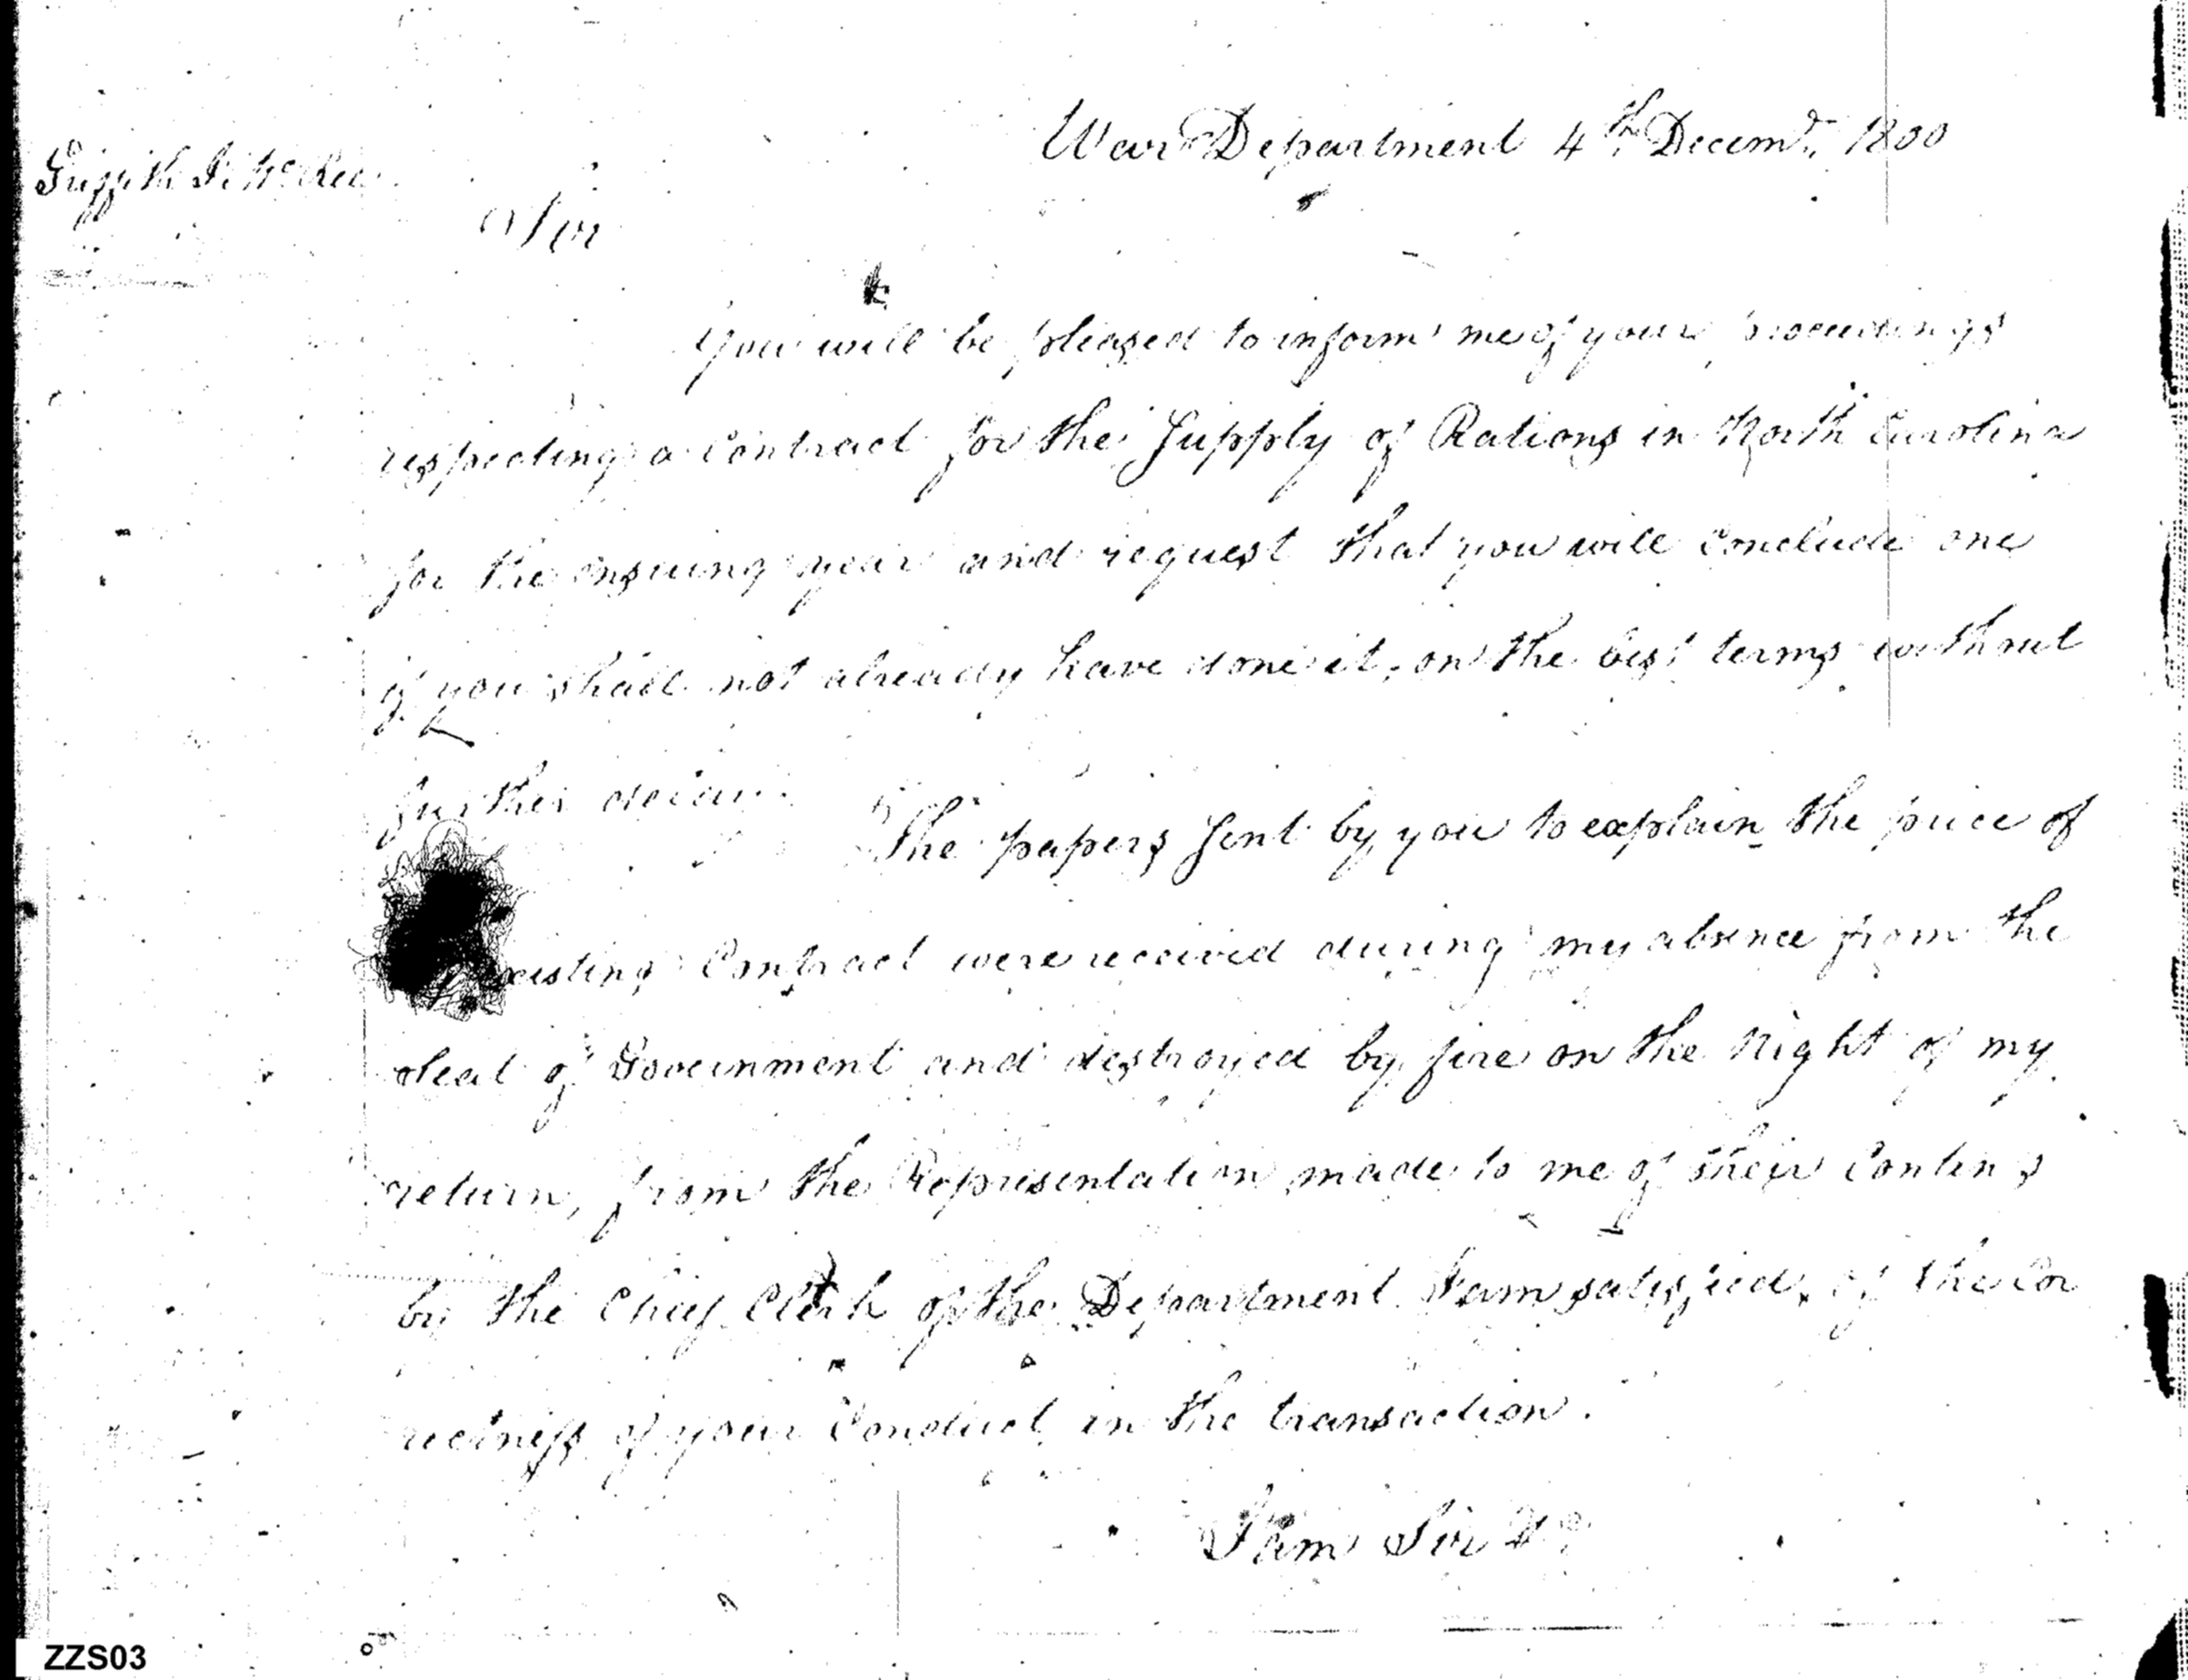 War Department 4th Decemr. 1800
Griffith J. McRee
Sir
You will be pleased to inform me of your proceedings
respecting a Contract for the Supply of Rations in North Carolina
for the ensuing year and request that you will conclude one
if you shall not already have done it, on the best terms without
further delay.
The papers sent by you to explain the price of
existing Contract were received during my absence from the
Seat of Government and destroyed by fire on the Night of my
return, from the Representation made to me of their Contents
by the Chief Clerk of the Department I am satisfied of the Cor
rectness of your Conduct in the transaction.
I am Sir &c
ZZS03